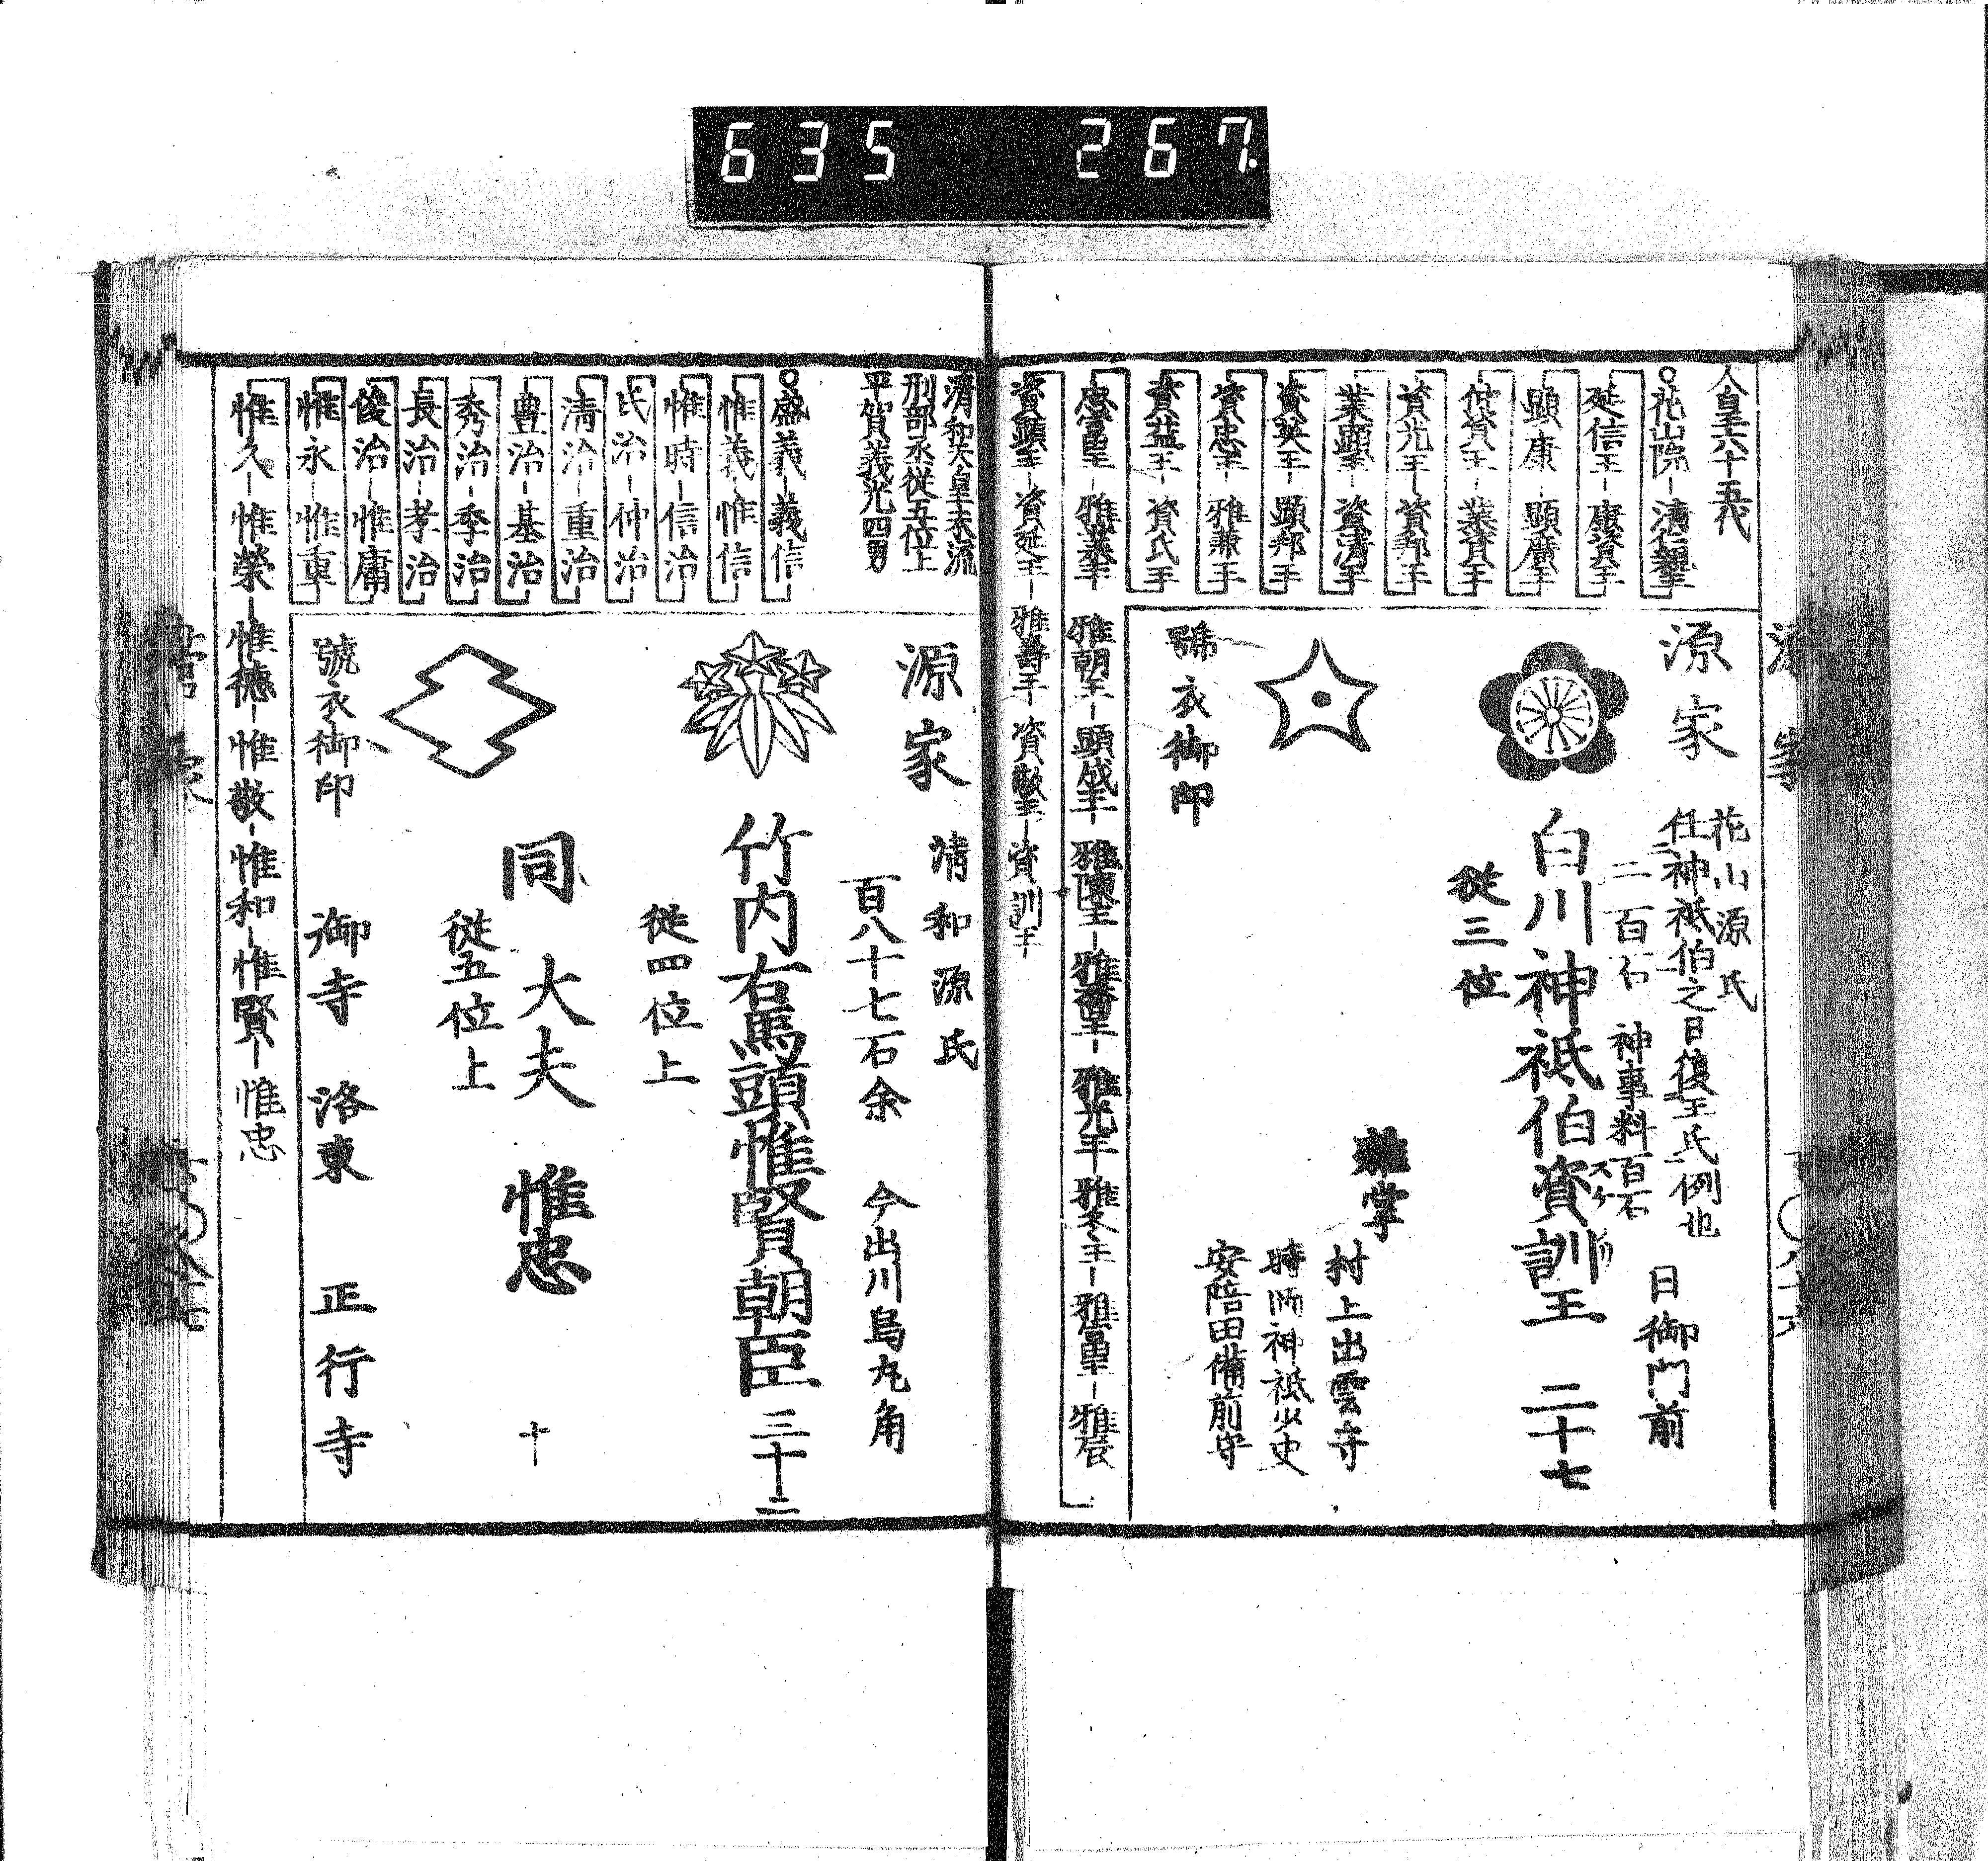 635 267
人皇六十五代
花山院－清仁親王
延信王－康資王
顕康－顕廣王
仲資王－業資王
資光王－資邦王
業顕王－資清王
資英王－顕邦王
資忠王－雅兼王
資益王－資氏王
忠富王－雅業王－雅朝王－顕成王－雅陳王－雅喬王－雅光王－雅冬王－雅富王－雅辰
資顕王－資延王－雅壽王－資敬王－資訓王
源家
花山源氏
任神祇伯之日復王氏例也
二百石 神事料百石
日御門前
白川神祇伯資訓王 二十七
従三位
雜掌
村上出雲守
神祇少史
安陪田備前守
號衣御印
清和天皇末流
刑部丞従五位上
平賀義光四男
盛義－義信
惟義－惟信
惟時－信治
氏治－仲治
清治－重治
豊治－基治
秀治－季治
長治－孝治
俊治－惟庸
惟永－惟重
惟久－惟榮－惟徳－惟敬－惟和－惟賢－惟忠
源家
清和源氏
百八十七石余 今出川烏丸角
竹内右馬頭惟賢朝臣 三十二
従四位上
同 大夫 惟忠 十
従五位上
號衣御印
御寺 洛東 正行寺